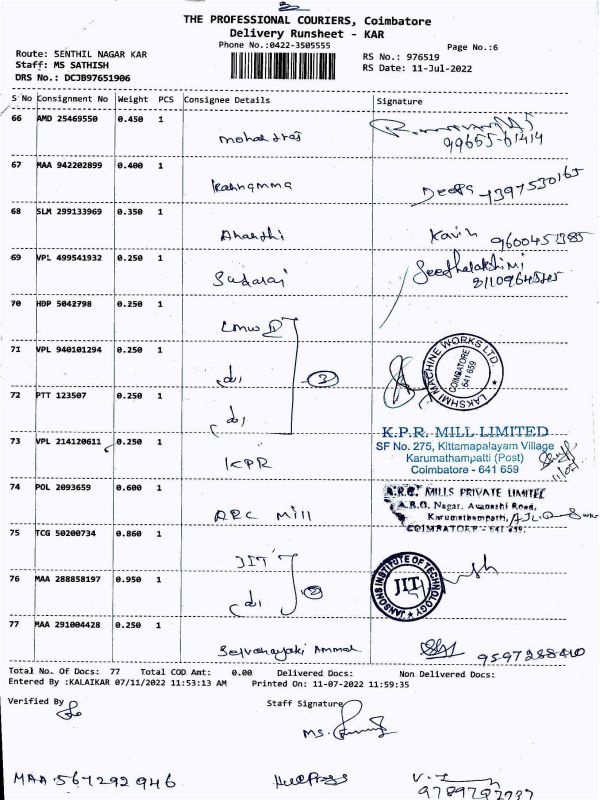 THE PROFESSIONAL COURIERS, Coimbatore
Delivery Runsheet - KAR
Phone No.:0422-3505555
Page No.:6
Route: SENTHIL NAGAR KAR
RS No.: 976519
Staff: MS SATHISH
RS Date: 11-Jul-2022
DRS No.: DCJB97651906
S No Consignment No Weight PCS Consignee Details Signature
66 AMD 25469550 0.450 1 mohanraj
67 MAA 942202899 0.400 1 Kannamma Deepa
68 SLM 299133969 0.350 1 Ananthi Kavin
69 VPL 499541932 0.250 1 Seethalakshimi
70 HDP 5042798 0.250 1 LMW
71 VPL 940101294 0.250 1 do, 3 LAKSHMI MACHINE WORKS LTD. COIMBATORE 641 659
72 PTT 123507 0.250 1 do,
73 VPL 214120611 0.250 1 KPR K.P.R. MILL LIMITED
SF No. 275, Kittampalayam Village
Karumathampatti (Post)
Coimbatore - 641 659
74 POL 2093659 0.600 1 ARC Mill A.R.C. MILLS PRIVATE LIMITED
A.R.C. Nagar, Avanashi Road,
Karumathampathy,
COIMBATORE - 641 659.
75 TCG 50200734 0.860 1 JIT
76 MAA 288858197 0.950 1 do, 2 JANSONS INSTITUTE OF TECHNOLOGY JIT
77 MAA 291004428 0.250 1 Selvanayaki Ammal
Total No. Of Docs: 77 Total COD Amt: 0.00 Delivered Docs: Non Delivered Docs:
Entered By :KALAIKAR 07/11/2022 11:53:13 AM Printed On: 11-07-2022 11:59:35
Verified By Staff Signature
MAA 567292946